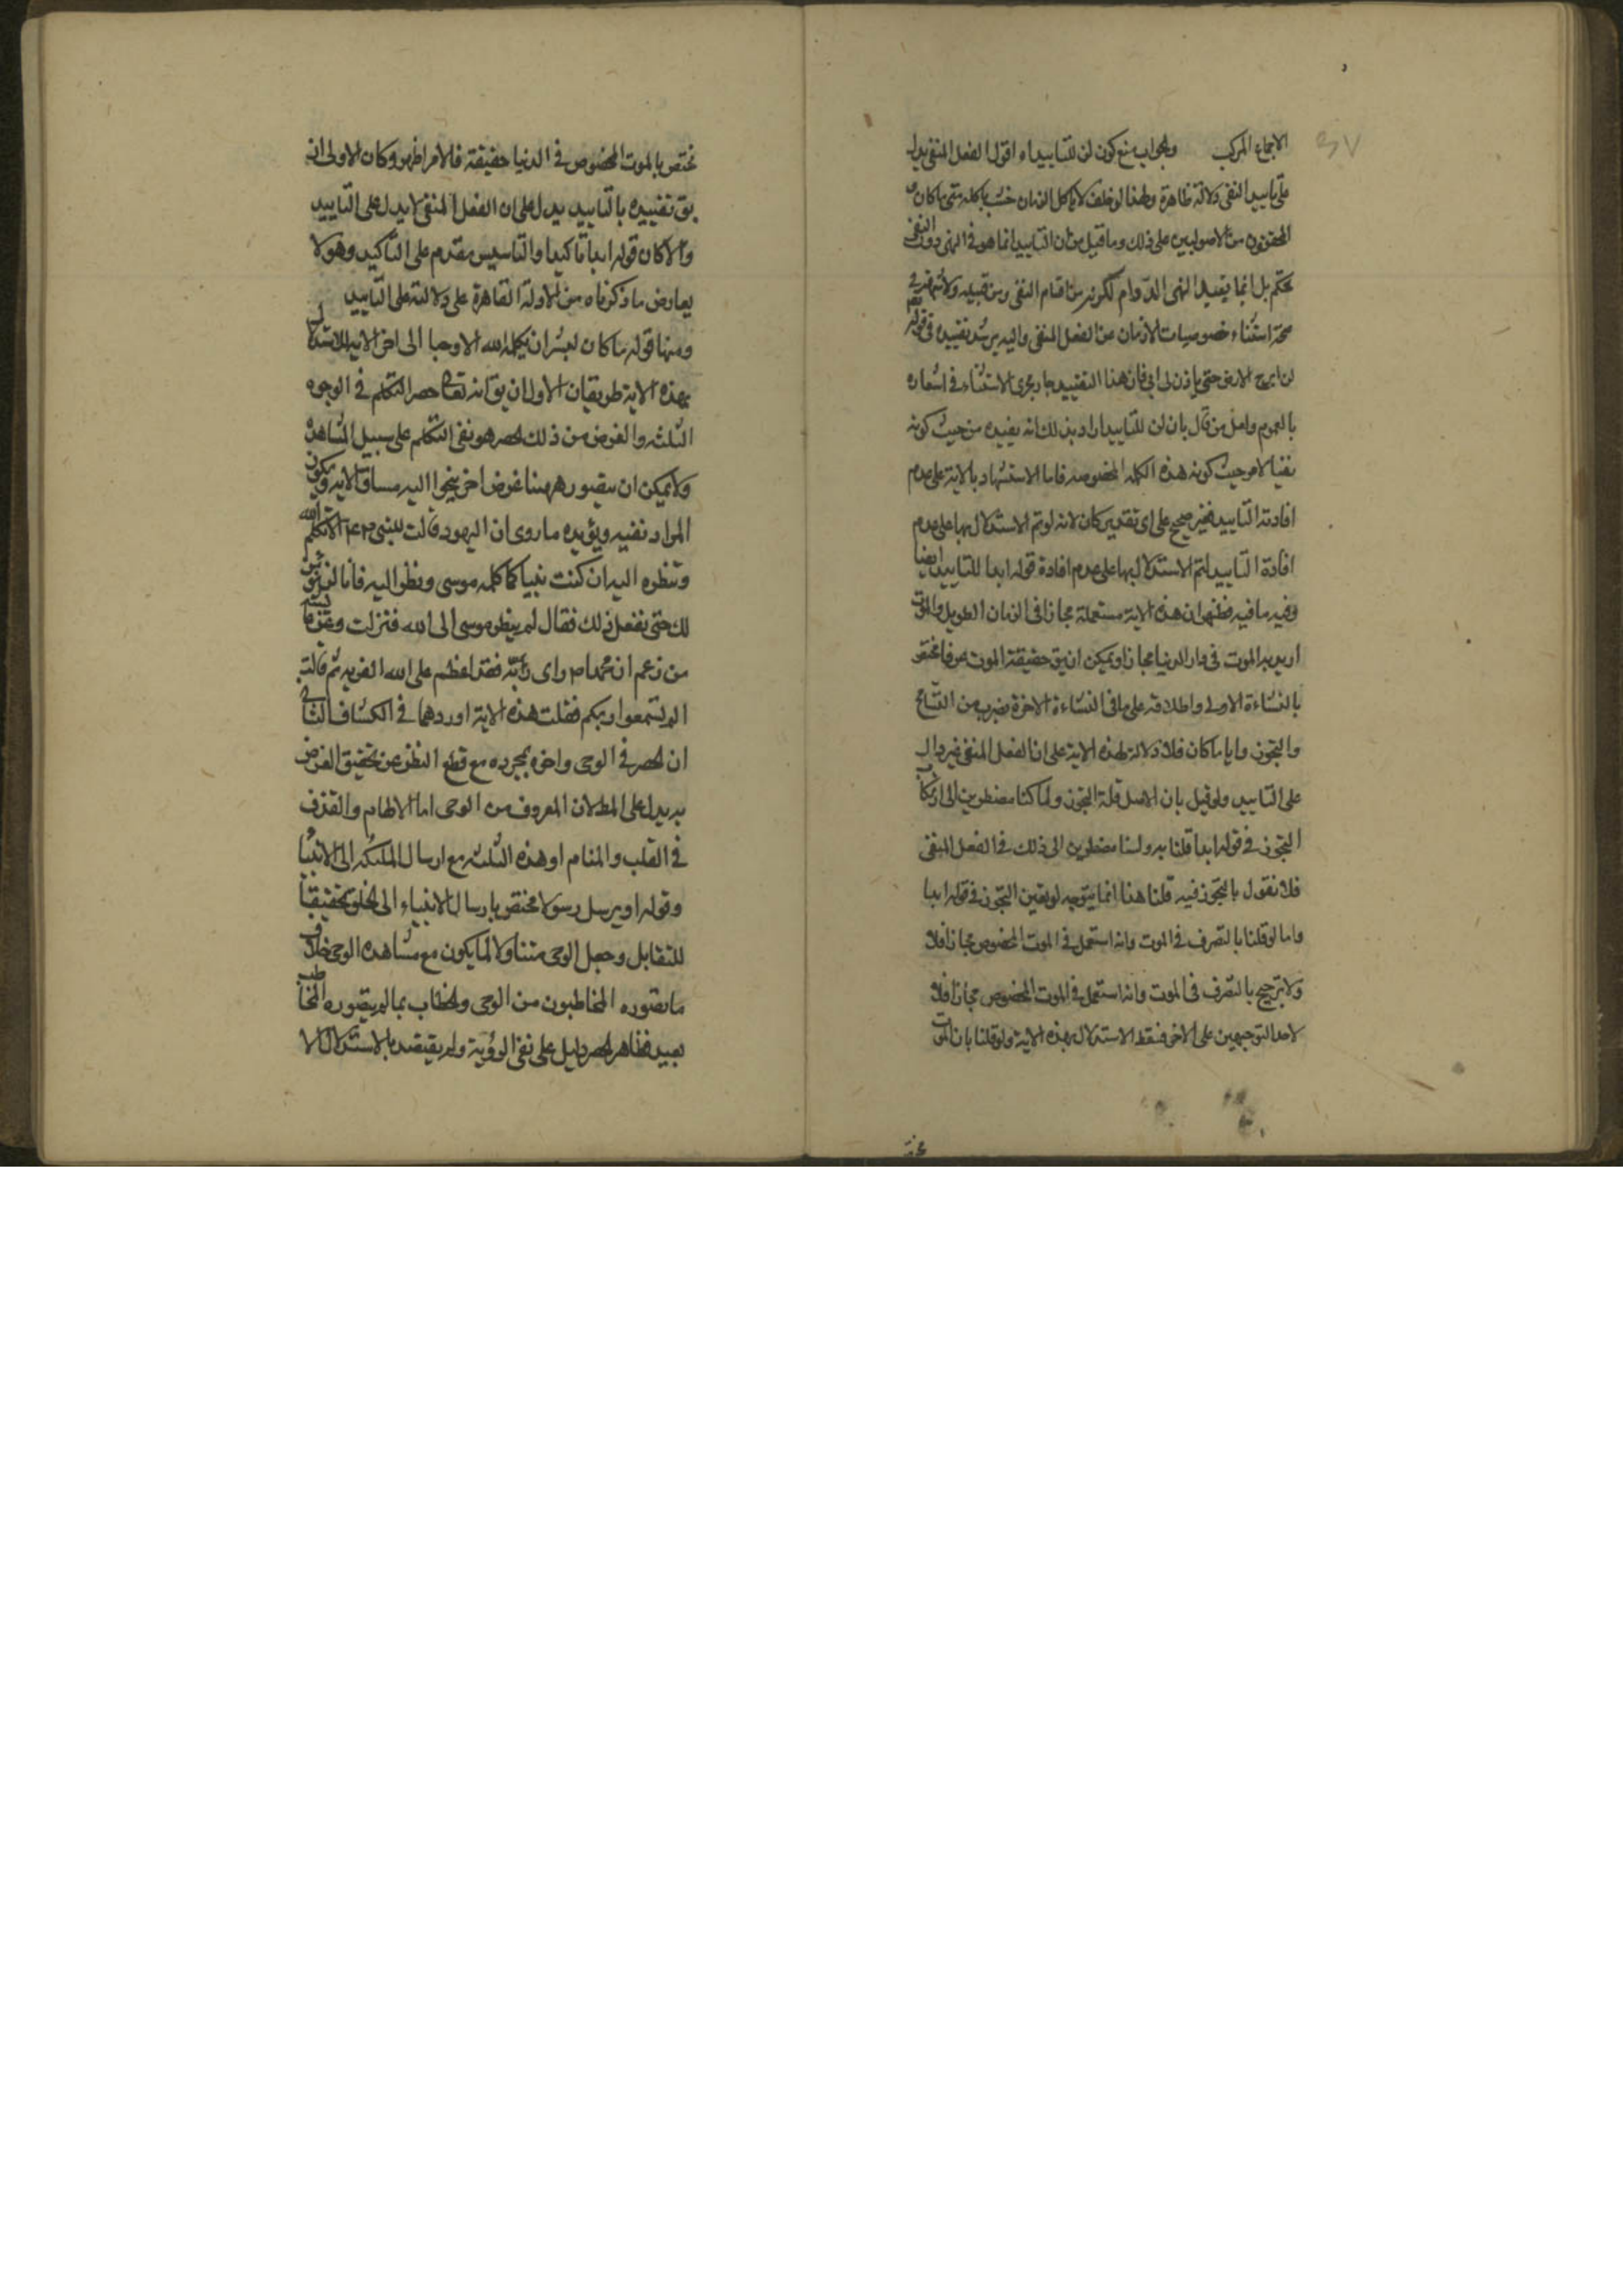 الاجماع المركب والجواب منع كون لن للتابيد اه اقول الفعل المنفى يدل
على تابيد النفى دلالة ظاهرة ولهذا لو حلف لا ياكل الزمان حنث باكله متى ما كان
المحققون من الاصوليين على ذلك وما قيل من ان التابيد انما هو فى النهى دون النفى
تحكم بل انما يفيد النهى الدوام لكونه من اقسام النفى ومن قبيله ولا شبهة فى
صحة استثناء خصوصيات الازمان عن الفعل المنفى واليه يرشد تقييده فى قوله تعم
لن ابرح الارض حتى ياذن لى ابى فان هذا التقييد جار مجرى الاستثناء فى اشعاره
بالعموم ولعل من قال بان لن للتابيد اراد بذلك انه يفيده من حيث كونه
نفيا لا من حيث كونه هذه الكلمة المخصوصة فاما الاستشهاد بالاية على عدم
افادته التابيد فغير صحيح على اى تقدير كان لانه لو تم الاستدلال بها على عدم
افادة التابيد لتم الاستدلال بها على عدم افادة قوله ابدا للتابيد ايضا
وفيه ما فيه فظهر ان هذه الاية مستعملة مجازا فى الزمان الطويل والموت
اريد به الموت فى دار الدنيا مجازا ويمكن ان يق حقيقة الموت عرفا مختص
بالنشاءة الاولى واطلاقه على ما فى النشاءة الاخرة بضرب من التسامح
والتجوز وايا ما كان فلا دلالة لهذه الاية على ان الفعل المنفى غير دال
على التابيد ولو قيل بان الاصل قلة التجوز ولما كنا مضطرين الى ارتكاب
التجوز فى قوله ابدا قلنا به ولسنا مضطرين الى ذلك فى الفعل المنفى
فلا نقول بالتجوز فيه قلنا هذا انما يتوجه لو تعين التجوز فى قوله ابدا
واما لو قلنا بالتصرف فى الموت وانه استعمل فى الموت المخصوص مجازا فلا
ولا ترجيح بالتصرف فى الموت وانه استعمل فى الموت المخصوص مجازا فلا
لاحد التوجيهين على الاخر فسقط الاستدلال بهذه الاية ولو قلنا بان الموت
مختص بالموت المخصوص فى الدنيا حقيقة فالامر اظهر وكان الاولى ان
يق تقييده بالتابيد يدل على ان الفعل المنفى لا يدل على التابيد
والا كان قوله ابدا تاكيدا والتاسيس مقدم على التاكيد وهو لا
يعارض ما ذكرناه من الادلة القاهرة على دلالته على التابيد
ومنها قوله ما كان لبشر ان يكلمه الله الا وحيا الى اخر الاية للاستدلال
بهذه الاية طريقان الاول ان يق انه تعالى حصر التكلم فى الوجوه
الثلثة والغرض من ذلك الحصر هو نفى التكلم على سبيل المشاهدة
ولا يمكن ان يتصور ههنا غرض اخر ينحوا اليه مساق الاية ويكون
المراد نفيه ويؤيده ما روى ان اليهود قالت للنبى ص الا تكلم الله
وتنظره اليه ان كنت نبيا كما كلمه موسى ونظر اليه فانا لن نؤمن
لك حتى تفعل ذلك فقال لم ينظر موسى الى الله فنزلت وعن عايشة
من زعم ان محمدا ص راى ربه فقد اعظم على الله الفرية ثم قالت
اولم تسمعوا ربكم فتلت هذه الاية اوردهما فى الكشاف الثانى
ان الحصر فى الوحى واخره بمجرده مع قطع النظر عن تحقيق الغرض
به يدل على المط لان المعروف من الوحى اما الالهام والقذف
فى القلب والمنام او هذه الثلثة مع ارسال الملئكة الى الانبياء
وقوله او يرسل رسولا مختص بارسال الانبياء الى الخلق تحقيقا
للتقابل وجعل الوحى متناولا لما يكون مع مشاهدة الوحى خلاف
ما تصوره المخاطبون من الوحى والخطاب بما لم يتصوره المخاطب
بعيد فظاهر الحصر دليل على نفى الرؤية ولم يقتصد بالاستدلال الا